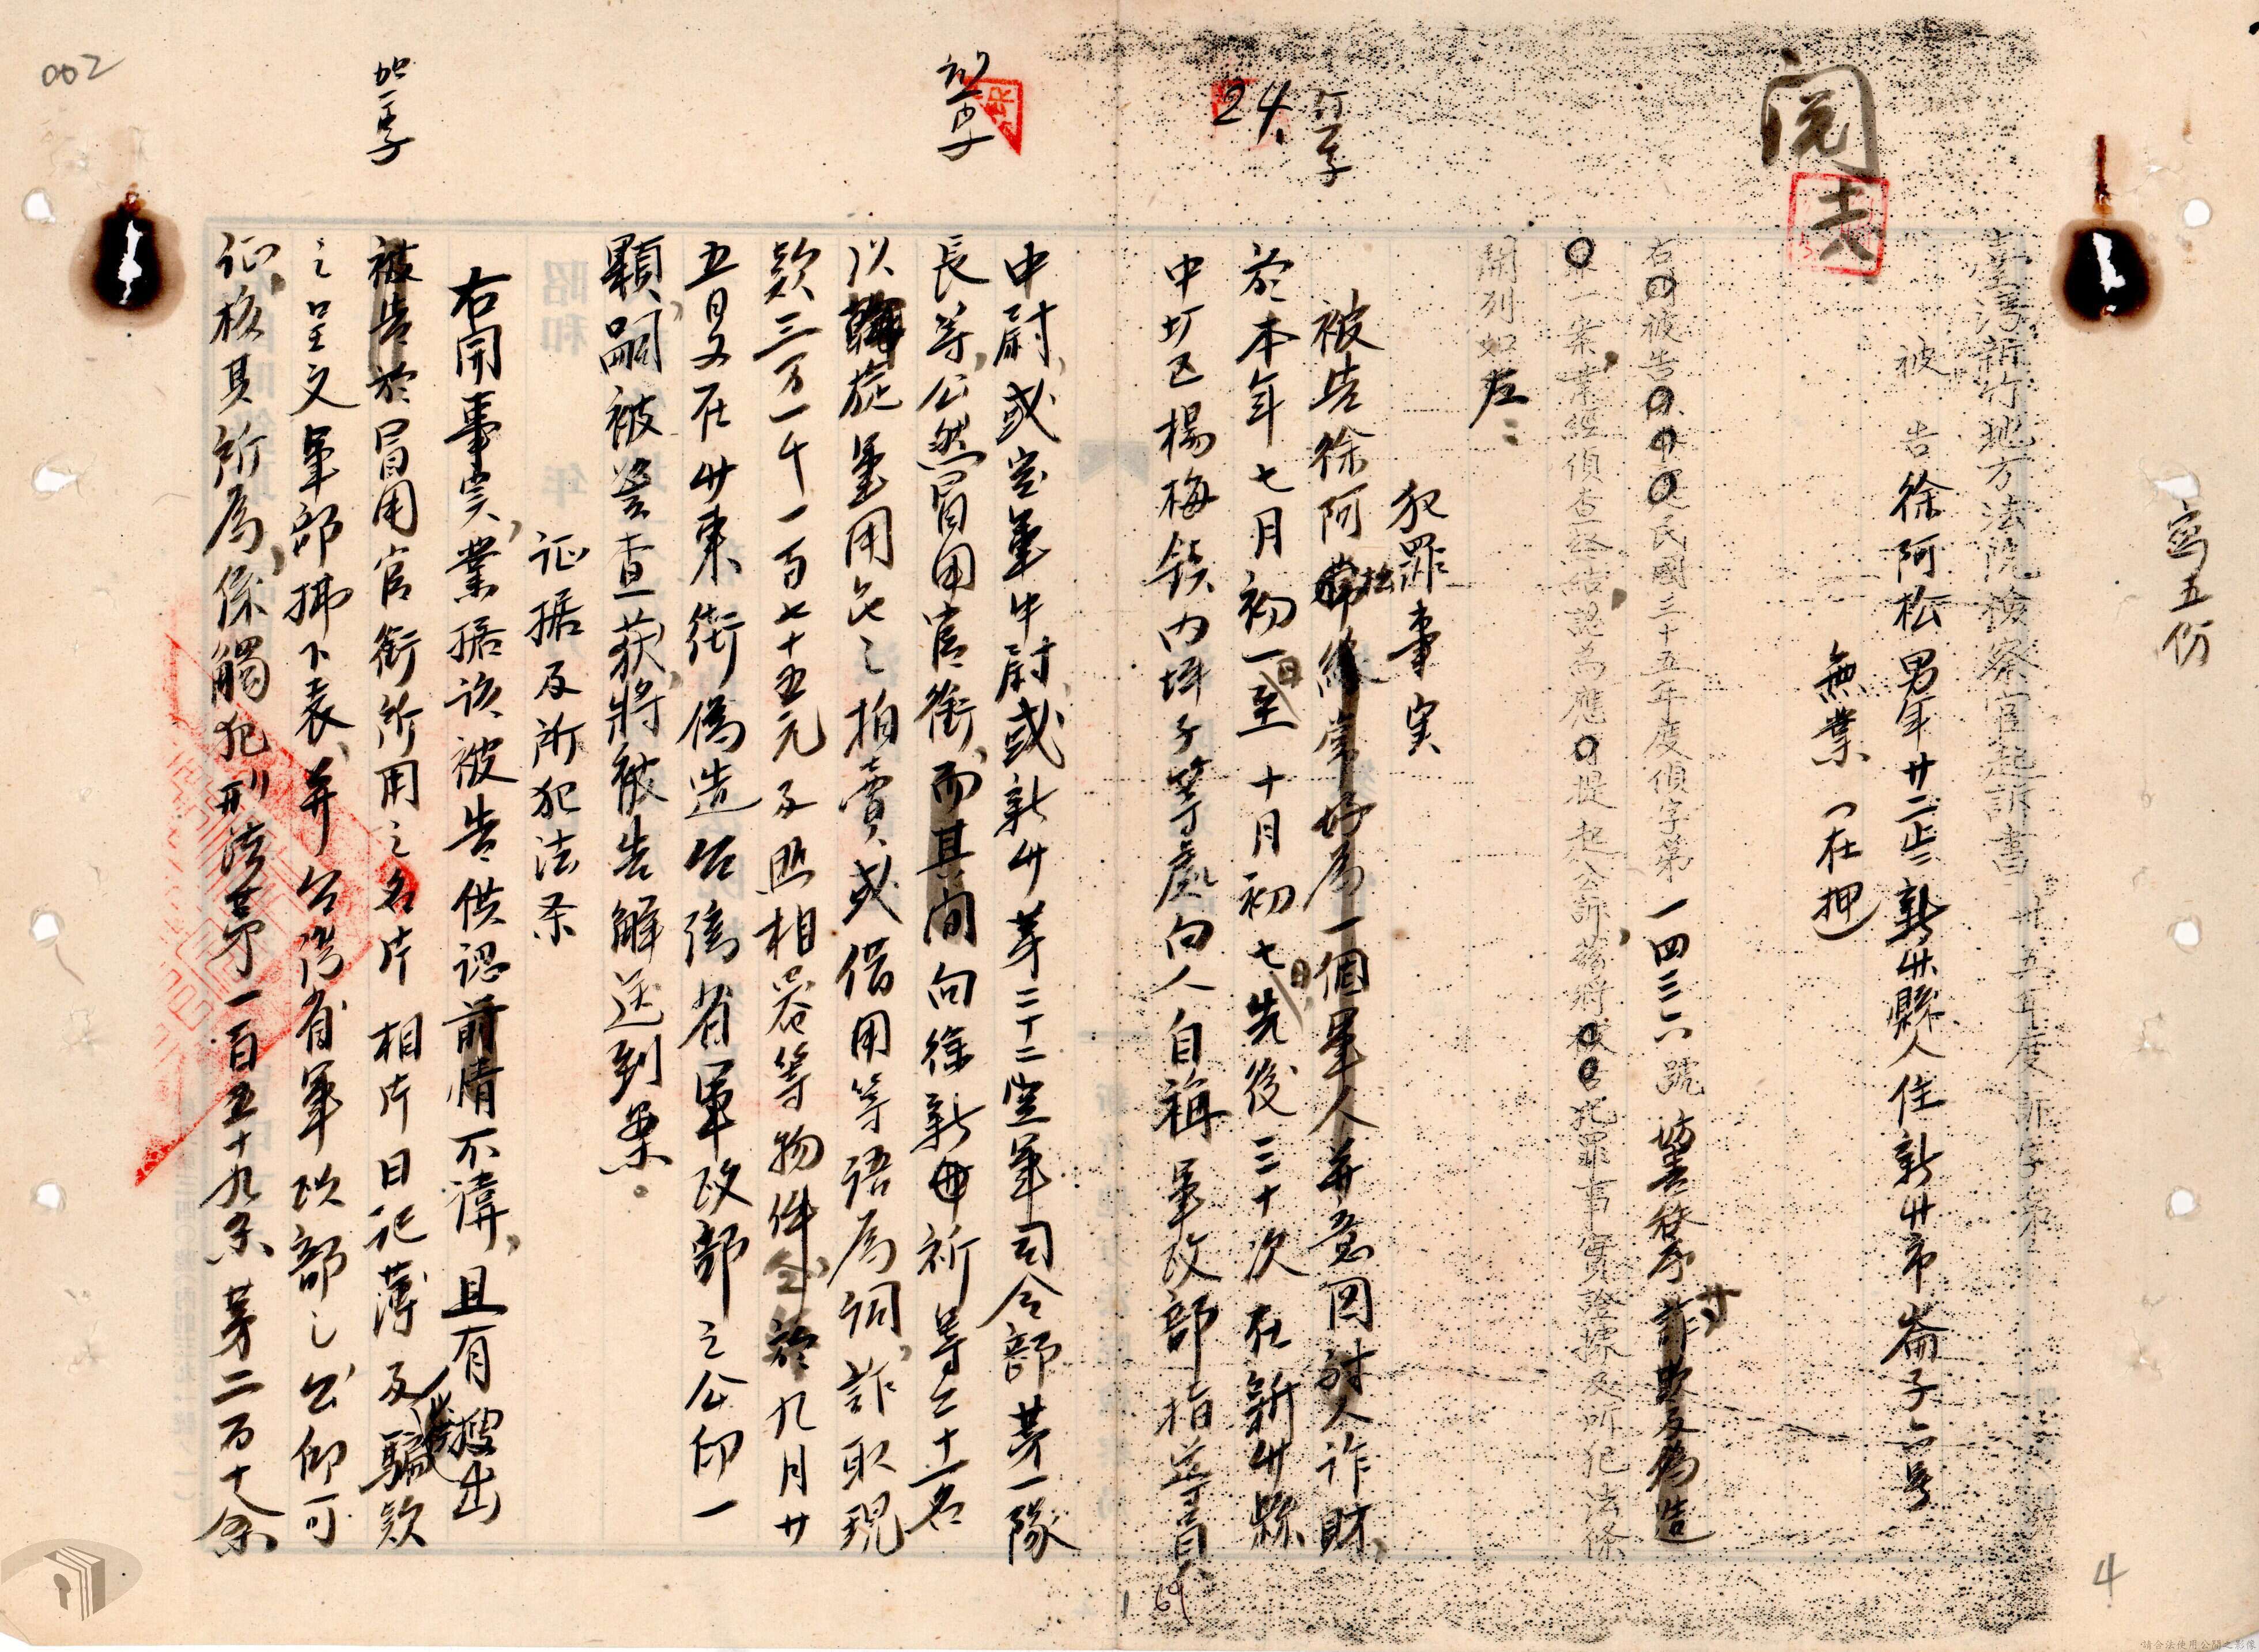 寫五份
臺灣新竹地方法院檢察官起訴書 卅五年度訴字第
被告徐阿松男年廿二歲新竹縣人住新竹市崙子六号
無業(在押)
右被告民國三十五年度偵字第一四三六號妨害秩序詐欺及偽造
一案業經偵查終結認為應提起公訴茲將被告犯罪事實證據及所犯法條
開列如左:
犯罪事实
被告徐阿松為一個軍人并意図对人诈財,
於本年七月初一日至十月初七日先後三十次在新竹縣
中圹区楊梅鎮内坪子等處向人自稱軍政部指導員
中尉,或空軍中尉,或新竹第二十二空軍司令部第一隊
長等,公然冒用官銜,而其間向徐新祈等三十一名
以斡旋軍用品之拍賣,或借用等语為词,詐取現
欵三万一千一百七十五元及照相器等物件,於九月廿
五日又在竹東街偽造台湾省軍政部之公印一
顆,嗣被警查获,將被告解送到案。
证据及所犯法条
右開事實,業据该被告供認前情不諱,且有搜出
被告於冒用官銜所用之名片相片日记薄及騙欵
之呈文軍部拂下表,并台湾省軍政部之公印可
证,核其所為,係觸犯刑法第一百五十九条第二百十八条
閲
24.
加一字
002
4
請合法使用公開之影像